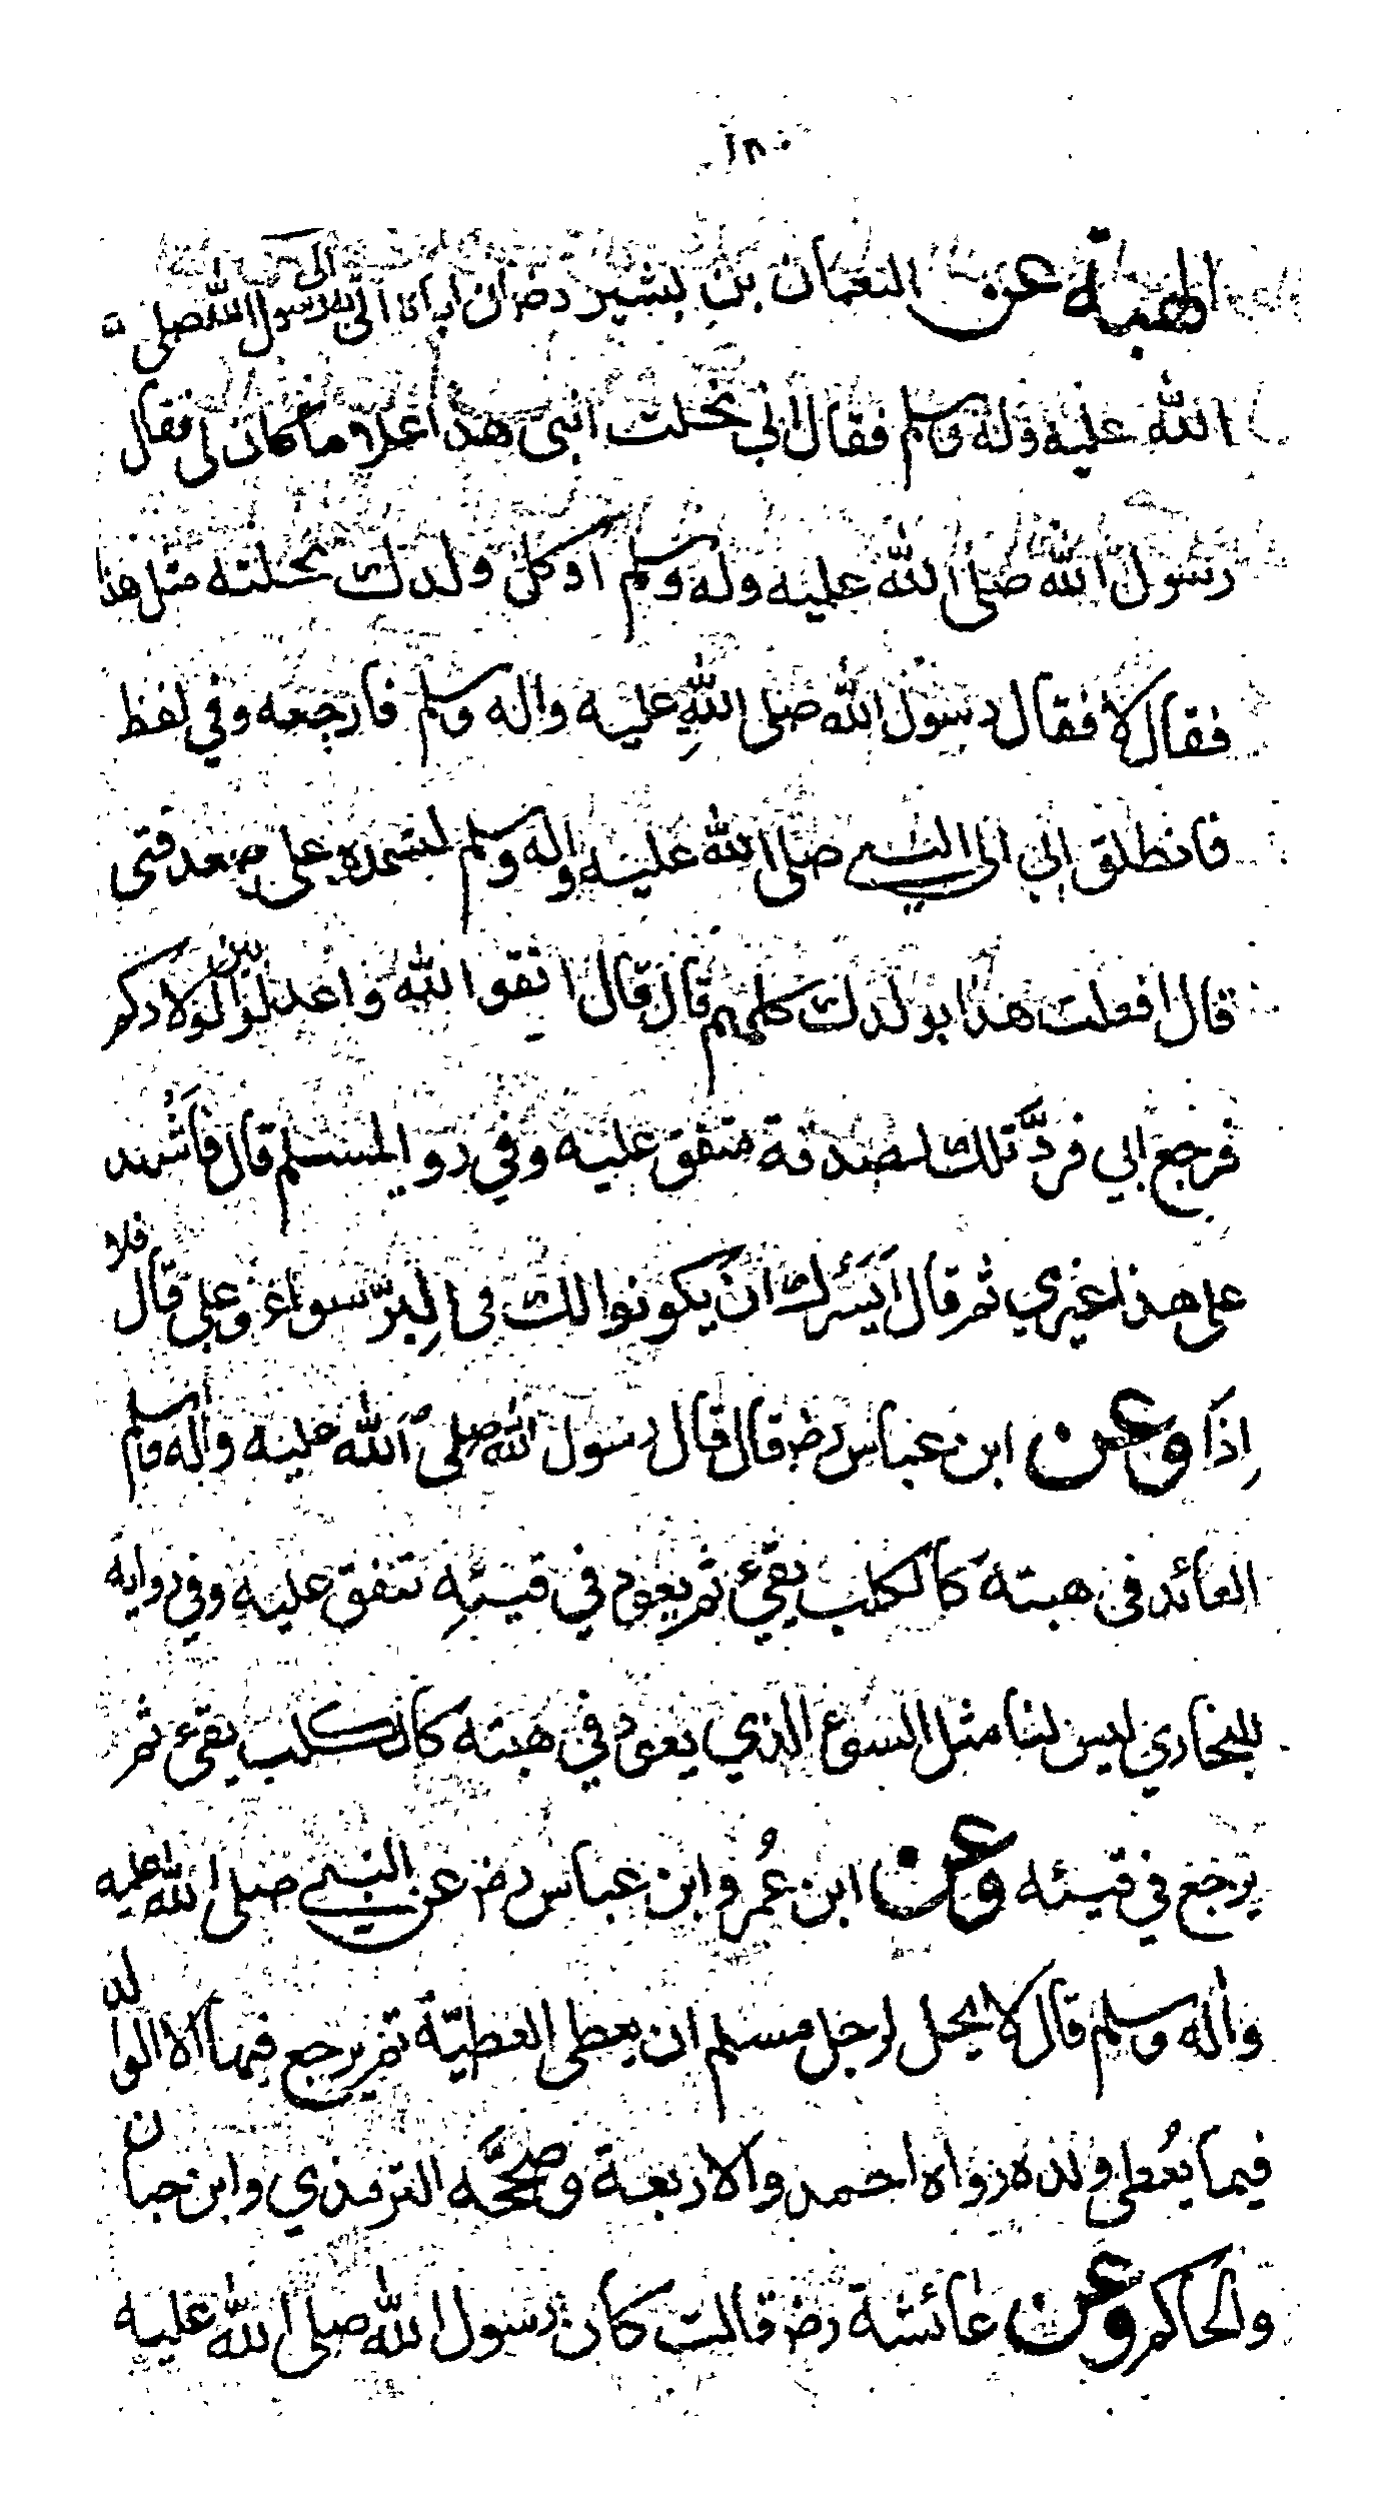 ١٨٠
الهبة عن النعمان بن بشير رضـ ان اباه اتى به رسول الله صلى
الله عليه وله وسلم فقال اني نحلت ابني هذا غلاما كان لي فقال
رسول الله صلى الله عليه وله وسلم اوكل ولدك نحلته مثل هذا
فقال لا فقال رسول الله صلى اللهِ عليه واله وسلم فارجعه وفي لفظ
فانطلق ابي الى النبي صلى الله عليه واله وسلم ليشهده على صعدقتى
قال افعلت هذا بولدك كلهم قال قال اتقوا الله واعدلوا بين اولادكم
فرجع ابي فردَّ تلك لصدقة متفق عليه وفي رواية لمسلم قال فَاَشْهد
على هذا غيري ثم قال اَيَسُرك انْ يكونوا لك في الِبرّ سواءً وعلى قال فلا
اِذًا وعن ابن عباس رضـ قال قال رسول الله صلى الله عليه واله وسلم
العائد في هبته كالكلب يقيُ ثم يعود في قيئهِ متفق عليه وفي رواية
للبخاري ليس لنا مثل السوء الذي يعود في هبته كالكلب يقيء ثم
يرجع في قيئه وعن ابن عُمر وابن عباس رضـ عن النبي صلى الله عليه
واله وسلم قال لا يحل لرجل مسلم ان يعطى العطيّة ثم يرجع فيها الا الوالد
فيما يُعطي ولده رواه احمد والاربعة وصحَّحه الترمذي وابن حبان
والحاكم وعن عائشة رضـ قالت كان رسول الله صلى الله عليه